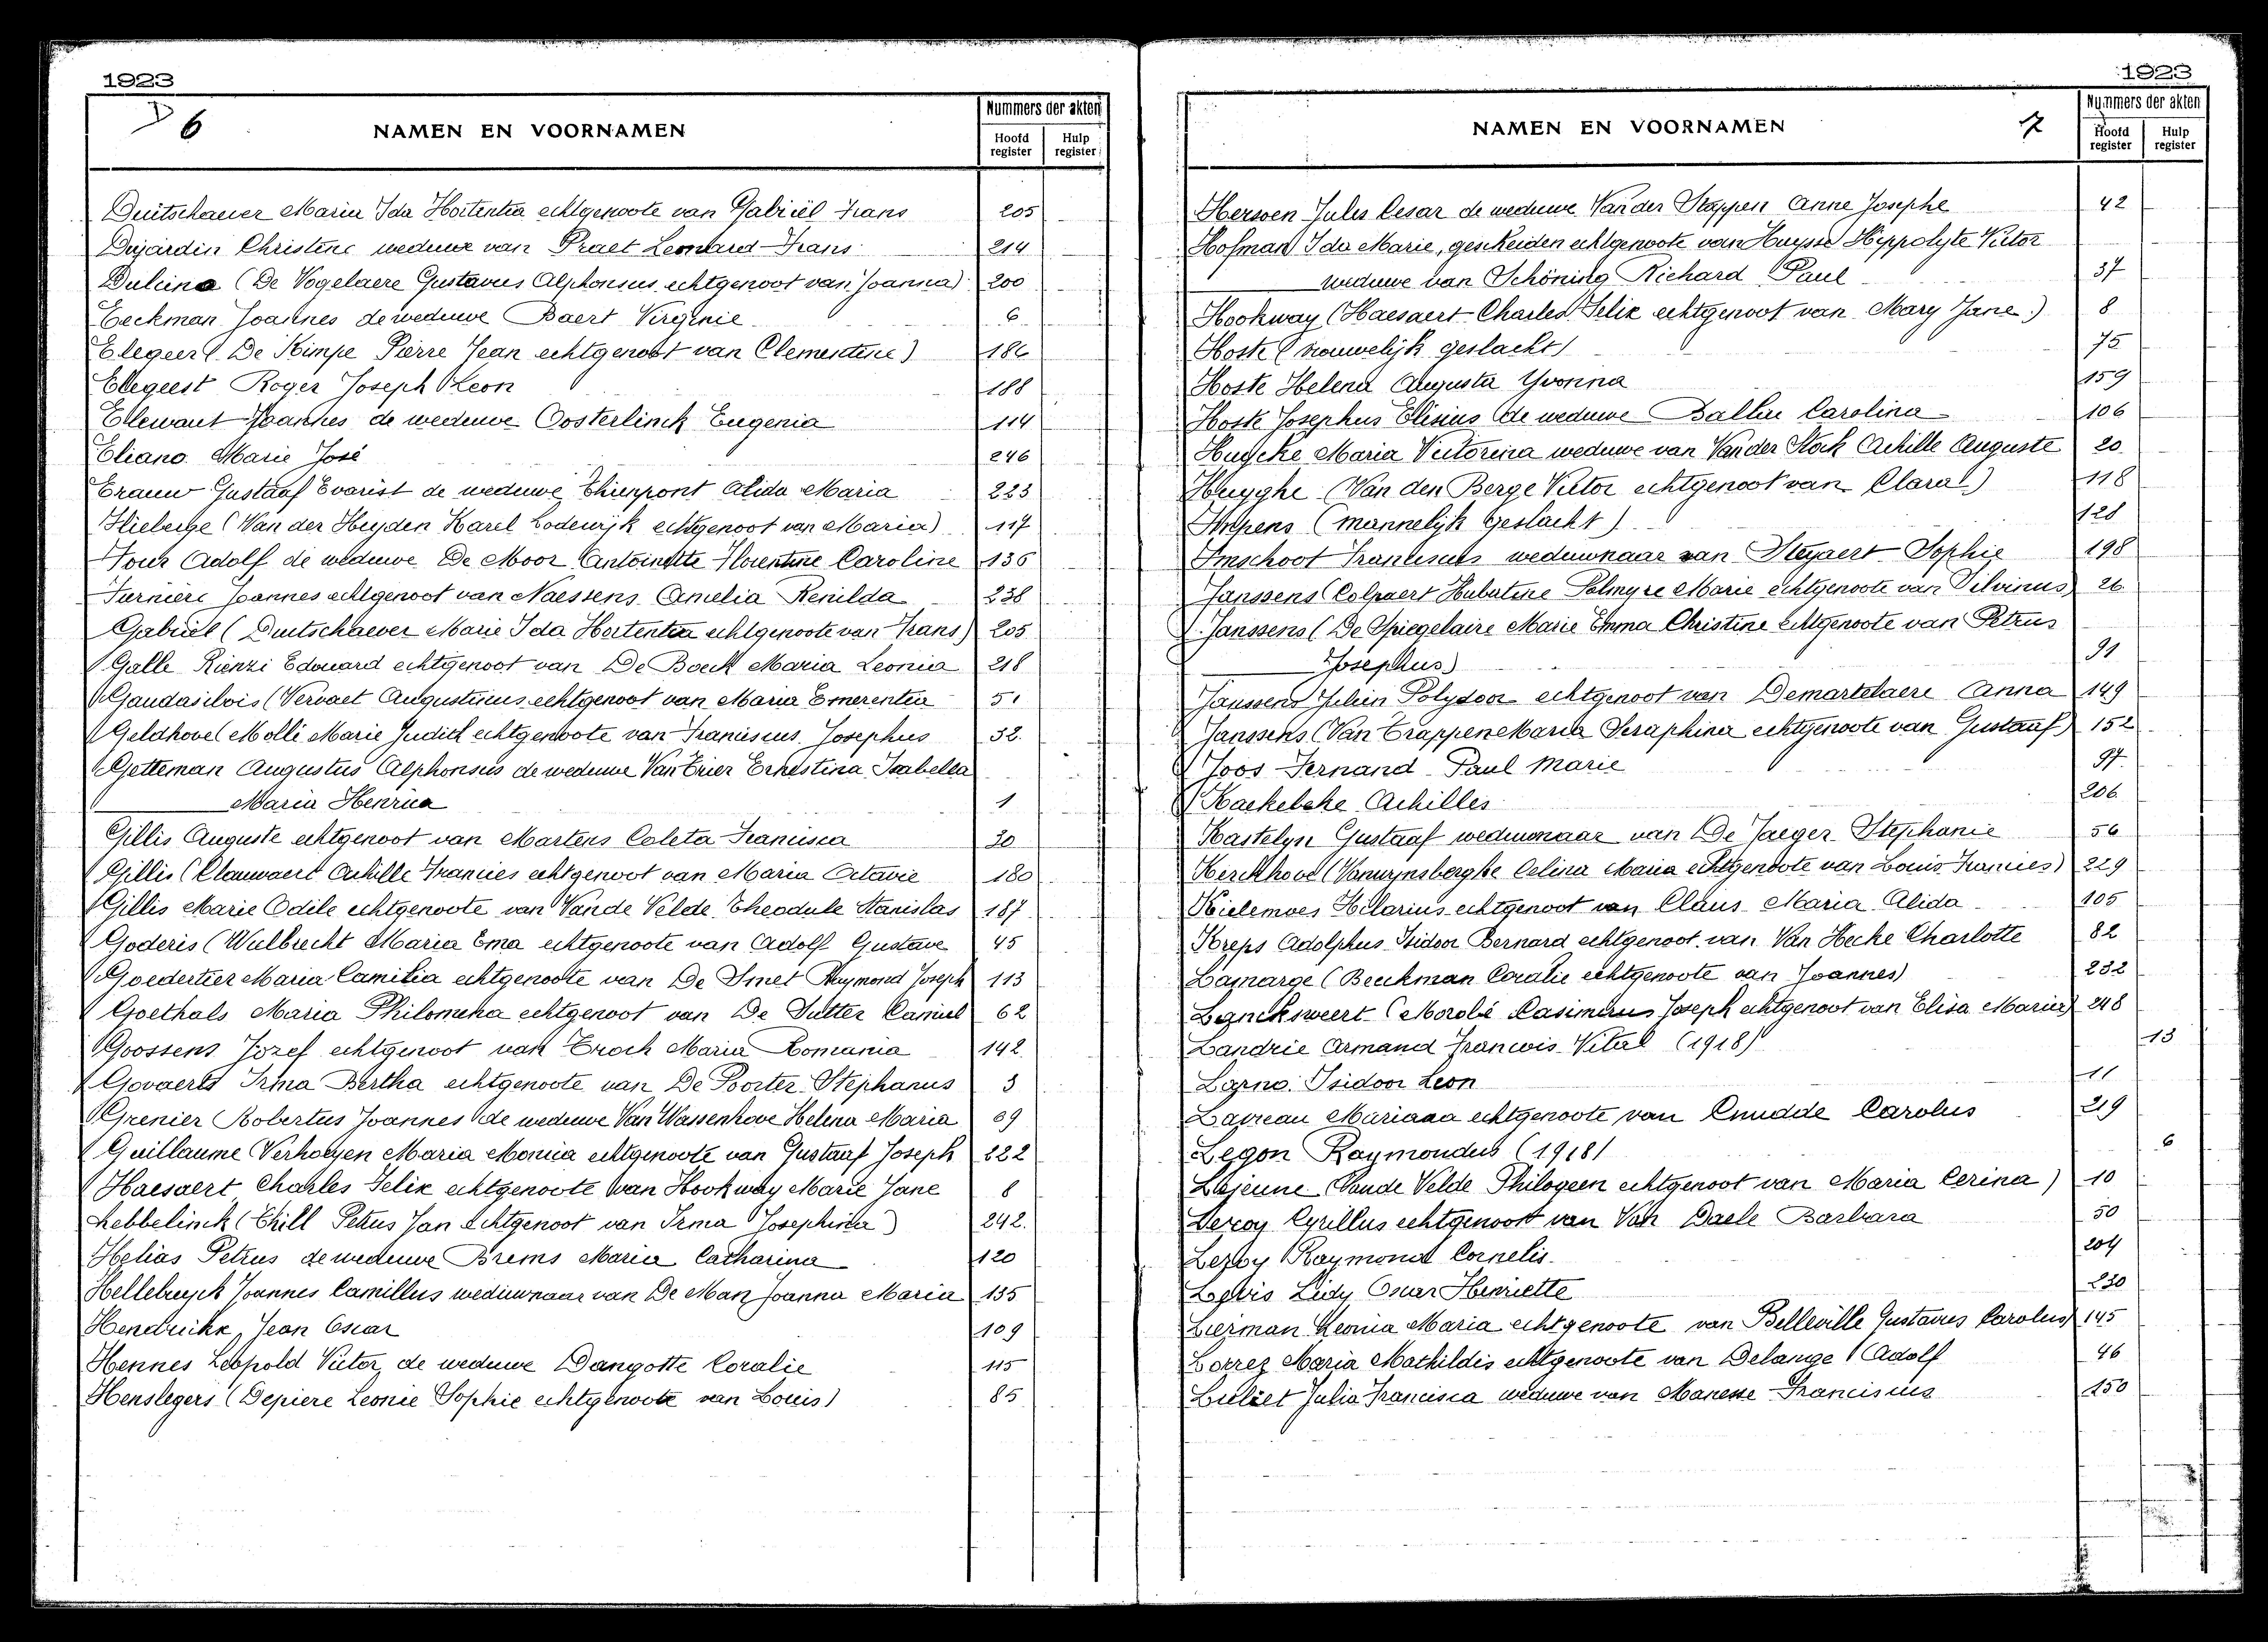 1923
6
NAMEN EN VOORNAMEN
Nummers der akten
Hoofd register
Hulp register
Duitschaever Maria Ida Hortentia echtgenoote van Gabriël Frans 205
Dujardin Christine weduwe van Praet Leonard Frans 214
Dulcina (De Vogelaere Gustavus Alphonsus echtgenoot van Joanna) 200
Eeckman Joannes de weduwe Baert Virginie 6
Elegeert (De Kimpe Pierre Jean echtgenoot van Clementine) 186
Elegeest Roger Joseph Leon 188
Ellewaut Joannes de weduwe Oosterlinck Eugenia 114
Eliano Marie José 246
Erauw Gustaaf Evarist de weduwe Thierpont Alida Maria 223
Flieberge (Van der Heyden Karel Lodewijk echtgenoot van Maria) 117
Four Adolf de weduwe De Moor Antoinette Florentine Caroline 136
Furniere Joannes echtgenoot van Naessens Amelia Renilda 238
Gabriël (Duitschaever Marie Ida Hortentia echtgenoote van Frans) 205
Galle Rienzi Edouard echtgenoot van De Boeck Maria Leonia 218
Gaudasilvis (Vervaet Augustinus echtgenoot van Maria Emerentia 51
Geldhove (Molli Marie Judith echtgenoote van Franciscus Josephus 32
Getteman Augustus Alphonsus de weduwe Van Trier Ernestina Isabella
Maria Henrica 1
Gillis Auguste echtgenoot van Martens Coleta Francisca 30
Gillis (Clauwaert Achille Francies echtgenoot van Maria Octavie 180
Gillis Marie Odile echtgenoote van Vande Velde Theodule Stanislas 187
Goderis (Wulbrecht Maria Ema echtgenoote van Adolf Gustave 45
Goedertier Maria Camilia echtgenoote van De Smet Raymond Joseph 113
Goethals Maria Philomena echtgenoot van De Sutter Camiel 62
Goossens Jozef echtgenoot van Troch Maria Romania 142
Govaerts Irma Bertha echtgenoote van De Poorter Stephanus 3
Grenier Robertus Joannes de weduwe Van Wassenhove Helena Maria 69
Guillaume Verhoeyen Maria Monica echtgenoote van Gustaaf Joseph 222
Haesaert Charles Felix echtgenoote van Hookway Marie Jane 8
Hebbelinck (Thill Petrus Jan echtgenoot van Irma Josephina) 242.
Helias Petrus de weduwe Brems Maria Catharina 120
Hellebuyck Joannes Camillus weduwnaar van De Man Joanna Maria 135
Hendrickx, Jean Oscar 109
Hennes Leopold Victor de weduwe Dangotte Coralie 115
Henslegers (Depiere Leonie Sophie echtgenoote van Louis) 85
1923
NAMEN EN VOORNAMEN
7
Nummers der akten
Hoofd register
Hulp register
Herssen Jules Cesar de weduwe Van der Stappen Anne Josephe 42
Hofman Ida Marie, gescheiden echtgenoote van Huysse Hippolyte Victor
weduwe van Schöning Richard Paul 37
Hookway (Haesaert Charles Felix echtgenoot van Mary Jane) 8
Hoste (vrouwelijk geslacht) 75
Hoste Helena Augusta Yvonna 159
Hoste Josephus Elisius de weduwe Balliu Carolina 106
Huycke Maria Victorina weduwe van Van der Stock Achille Auguste 20
Huyghe (Van den Berge Victor echtgenoot van Clara) 118
Impens (mannelijk geslacht) 128
Imschoot Franciscus weduwnaar van Steyaert Sophie 198
Janssens (Colpaert Hubertine Palmyre Marie echtgenoote van Silvinus) 26
Janssens (De Spiegelaire Marie Emma Christine echtgenoote van Petrus
Josephus) 91
Janssens Julien Polydoor echtgenoot van Demartelaere Anna 149
Janssens (Van Trappen Maria Seraphina echtgenoote van Gustaaf) 152
Joos Fernand Paul Marie 97
Kackebeke Achilles 206
Kastelyn Gustaaf weduwnaar van De Jaeger Stephanie 56
Kerckhove (Vanwynsberghe Celina Maria echtgenoote van Louis Francies) 229
Kielemoes Hilarius echtgenoot van Claus Maria Alida 105
Kreps Adolphus Isidoor Bernard echtgenoot van Van Hecke Charlotte 82
Lamarge (Beeckman Coralie echtgenoote van Joannes) 232
Lanckweert (Morobé Casimirus Joseph echtgenoot van Elisa Maria) 248
Landrie Armand Francois Vital (1918) 13
Larno Isidoor Leon 11
Laureau Mariana echtgenoote van Cnudde Carolus 219
Legon Raymondus (1918) 6
Lejeune (Vande Velde Philogeen echtgenoot van Maria Cerina) 10
Leroy Cyrillus echtgenoot van Van Daele Barbara 50
Leroy Raymond Cornelis 204
Lidy Oscar Henriette 230
Lierman Leonia Maria echtgenoote van Belleville Gustavus Carolus 145
Lorrez Maria Mathildis echtgenoote van Delange Adolf 46
Luliet Julia Francisca weduwe van Manesse Franciscus 150